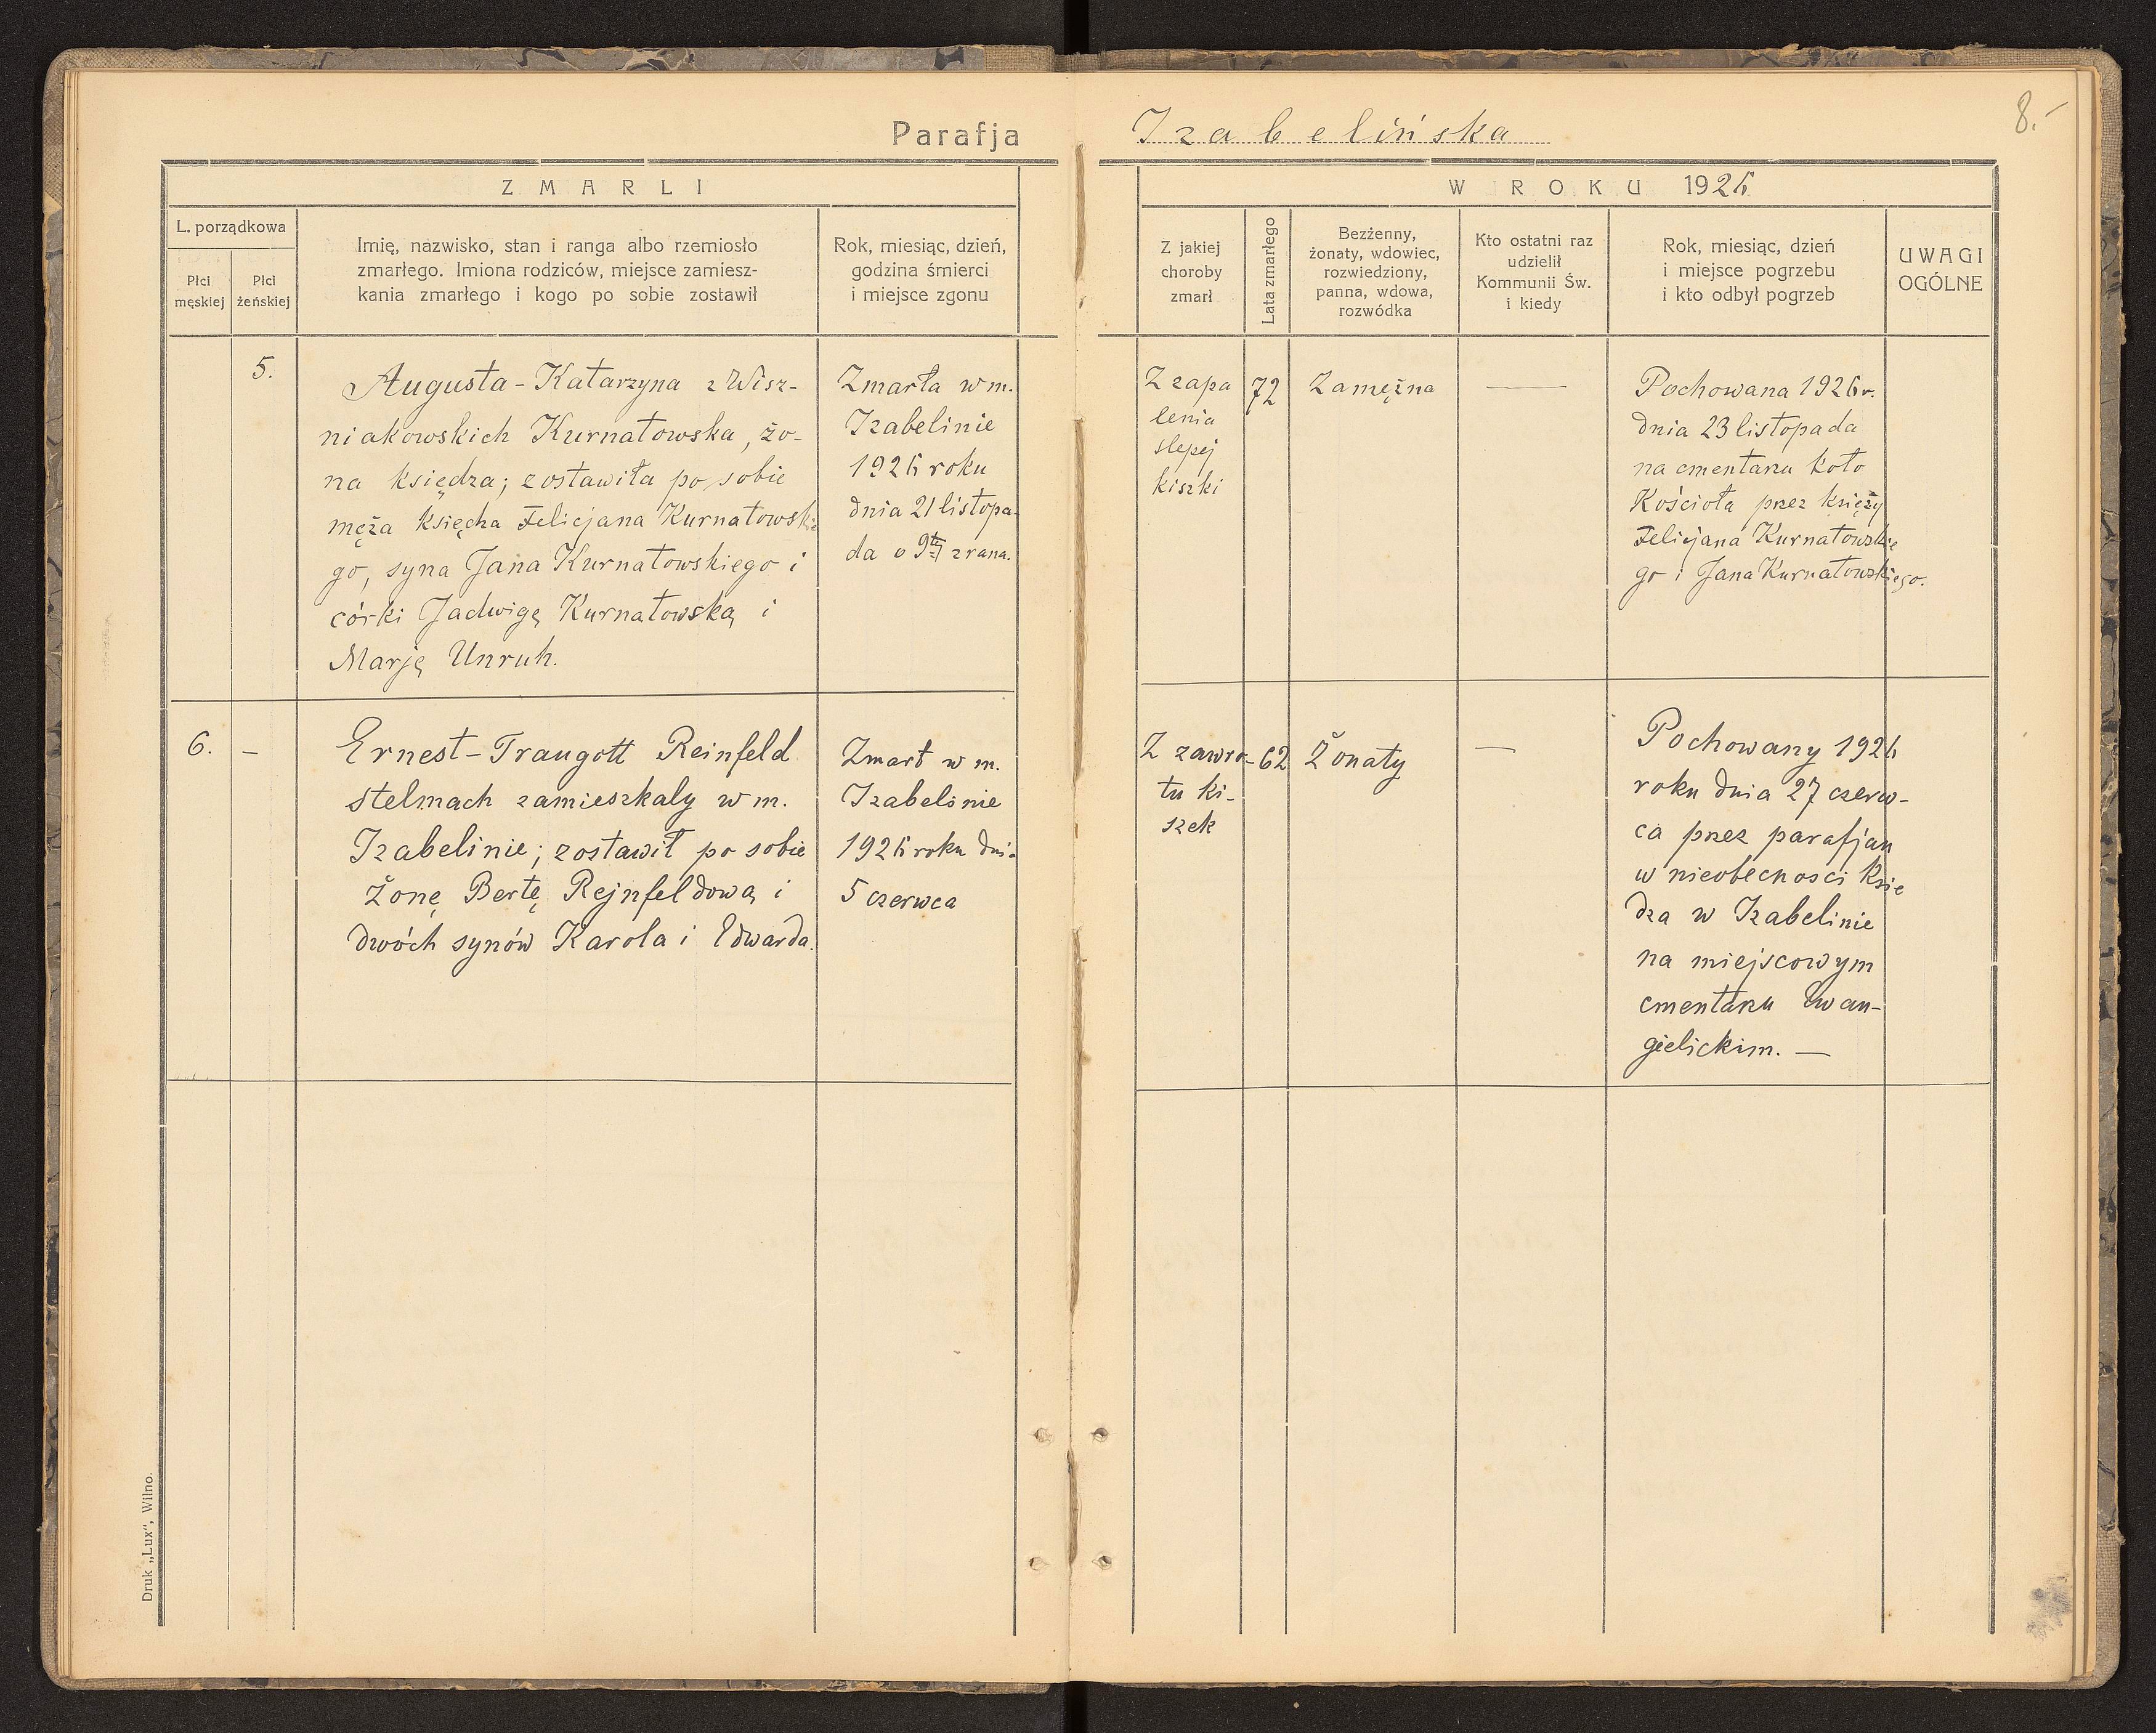 Parafja Izabelińska
8.-
ZMARLI
W ROKU 1926
L. porządkowa
Płci
męskiej
Płci
żeńskiej
Imię, nazwisko, stan i ranga albo rzemiosło
zmarłego. Imiona rodziców, miejsce zamiesz-
kania zmarłego i kogo po sobie zostawił
Rok, miesiąc, dzień,
godzina śmierci
i miejsce zgonu
Z jakiej
choroby
zmarł
Lata zmarłego
Bezżenny,
żonaty, wdowiec,
rozwiedziony,
panna, wdowa,
rozwódka
Kto ostatni raz
udzielił
Kommunii Św.
i kiedy
Rok, miesiąc, dzień
i miejsce pogrzebu
i kto odbył pogrzeb
UWAGI
OGÓLNE
5.
Augusta-Katarzyna z Wisz-
niakowskich Kurnatowska, żo-
na księdza; zostawiła po sobie
męża księdza Felicjana Kurnatowskie
go, syna Jana Kurnatowskiego i
córki Jadwigę Kurnatowską i
Marję Unruh.
Zmarła w m.
Izabelinie
1926 roku
dnia 21 listopa-
da o 9tej zrana.
Z zapa
lenia
slepej
kiszki
72
Zamężna
—
Pochowana 1926 r.
dnia 23 listopada
na cmentarzu koło
Kościoła przez księży
Felicjana Kurnatowskie
go i Jana Kurnatowskiego.
6. –
Ernest-Traugott Reinfeld
stelmach zamieszkały w m.
Izabelinie; zostawił po sobie
żonę Bertę Rejnfeldową i
dwóch synów Karola i Edwarda.
Zmarł w m.
Izabelinie
1926 roku dnia
5 czerwca
Z zawro-
tu ki-
szek
62
Żonaty
—
Pochowany 1926
roku dnia 27 czerw-
ca przez parafjan
w nieobecnosci księ
dza w Izabelinie
na miejscowym
cmentarzu Ewan-
gielickim. —
Druk „Lux", Wilno.